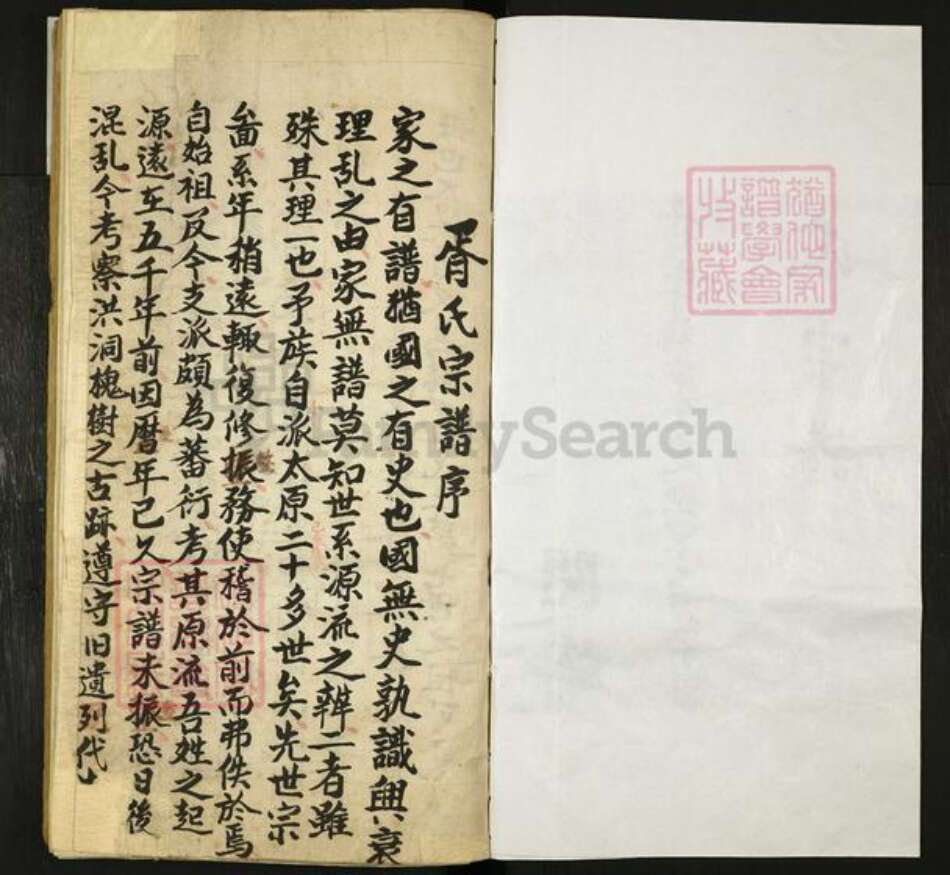 胥氏宗譜序
家之有譜猶國之有史也國無史孰識興衰
理乱之由家無譜莫知世系源流之辨二者雖
殊其理一也予族自派太原二十多世矣先世宗
系年稍遠輒復修振務使稽於前而弗佚於焉
自始祖及今支派頗為蕃衍考其原流吾姓之起
源遠在五千年前因曆年已久宗譜未振恐日後
混乱今考察洪洞槐樹之古跡遵守旧遺列代
FamilySearch
譜學會
收藏